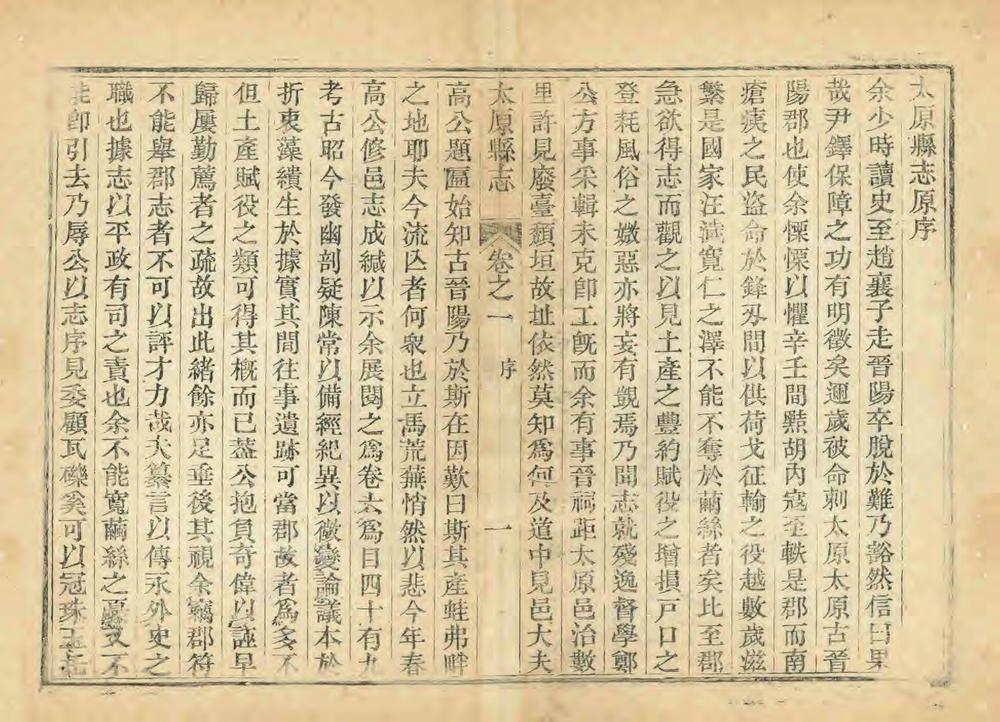 太原縣志原序
余少時讀史至趙襄子走晉陽卒脫於難乃豁然信曰果
哉尹鐸保障之功有明徵矣邇歲被命刺太原太原古晉
陽郡也使余慄慄以懼辛壬間黠胡內寇至軼是郡而南
瘡痍之民盜命於鋒刃間以供荷戈征輸之役越數歲滋
繁是國家汪濊寬仁之澤不能不奪於繭絲者矣比至郡
急欲得志而觀之以見土產之豐約賦役之增損戸口之
登耗風俗之媺惡亦將妄有覬焉乃聞志就殘逸督學鄭
公方事采輯未克卽工旣而余有事晉祠距太原邑治數
里許見廢臺頹垣故址依然莫知爲何及道中見邑大夫
太原縣志 卷之一 序 一
高公題匾始知古晉陽乃於斯在因歎曰斯其產蛙弗畔
之地耶夫今流亾者何衆也立馬荒蕪悄然以悲今年春
高公修邑志成緘以示余展閱之爲卷六爲目四十有九
考古昭今發幽剖疑陳常以備經紀異以徵變論議本於
折衷藻繢生於據實其間往事遺跡可當郡故者爲多不
但土產賦役之類可得其概而已蓋公抱負奇偉以誣早
歸屢勤薦者之疏故出此緒餘亦足垂後其視余竊郡符
不能舉郡志者不可以評才力哉夫纂言以傳永外史之
職也據志以平政有司之責也余不能寬繭絲之憂又不
能卽引去乃辱公以志序見委顧瓦礫奚可以冠珠玉